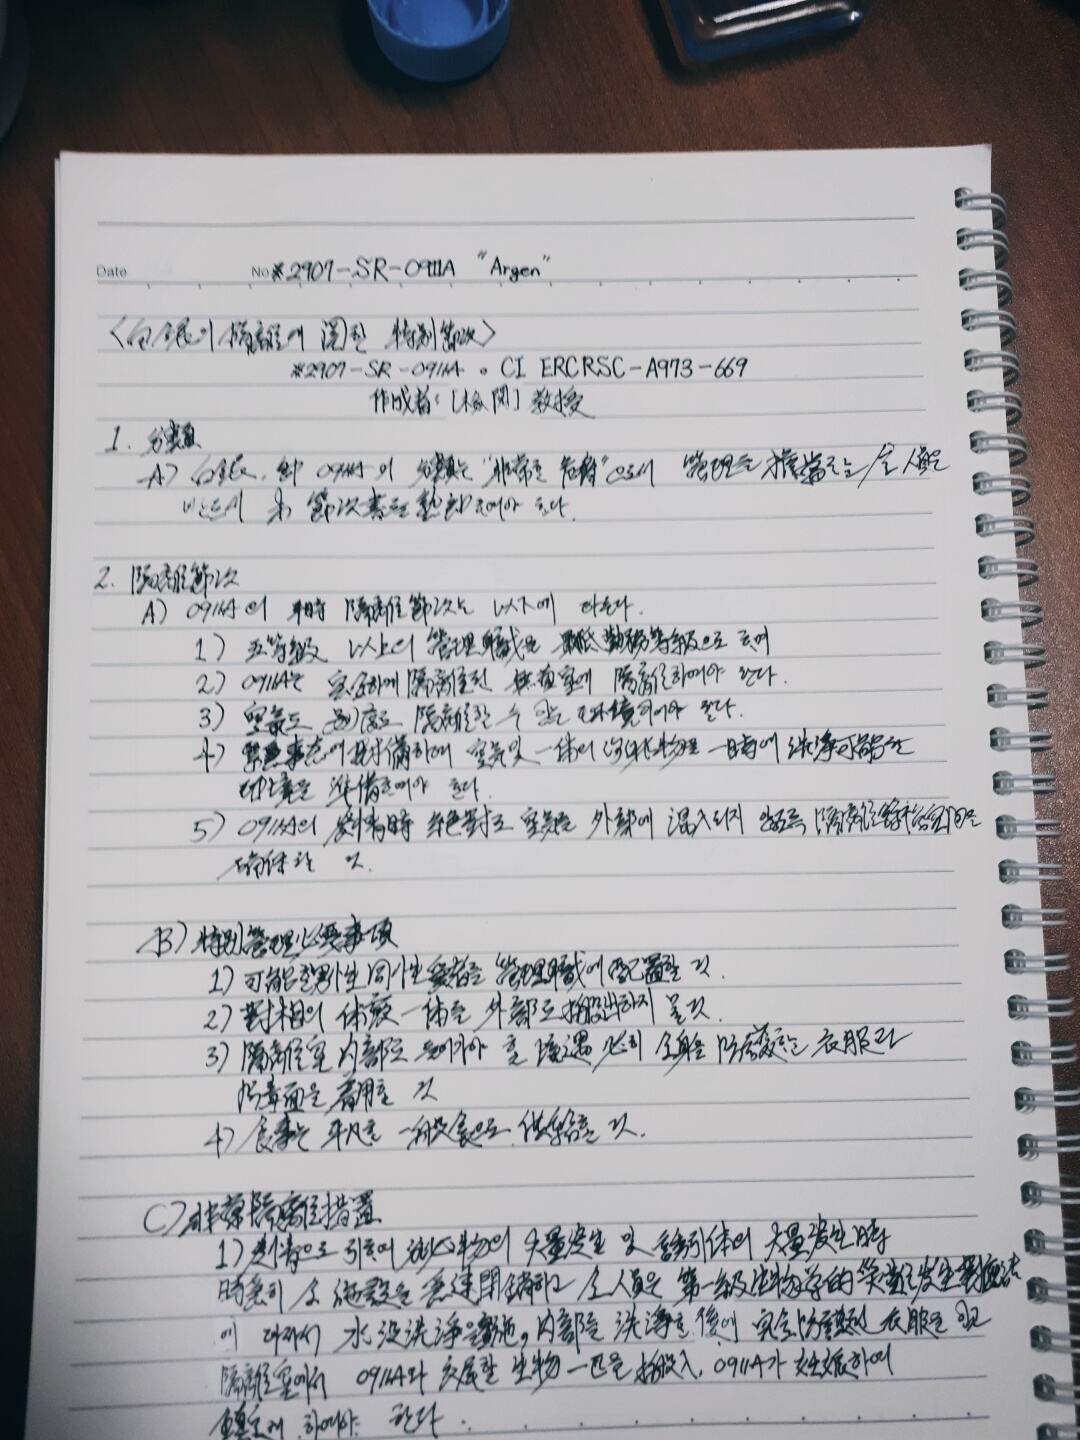 Date No※2907-SR-0911A "Argen"
<白銀의 隔離에 関한 特別節次>
※2907-SR-0911A. CI ERCRSC-A973-669
作成者: [検閲] 教授
1. 分類
A) 白銀, 即 0911A의 分類는 "非常한 危険"으로서 管理를 担当하는 全人員은
반드시 本 節次書를 熟知하여야 한다.
2. 隔離節次
A) 0911A의 平時 隔離節次는 以下에 따른다.
1) 五等級 以上의 管理職을 最低勤務等級으로 하며
2) 0911A는 完全하게 隔離된 無菌室에 隔離하여야 한다.
3) 空気도 別度로 隔離할 수 있는 環境이어야 한다.
4) 緊急事態에 対備하여 空気 및 一体의 物을 一時에 洗浄可能한
環境을 準備하여야 한다.
5) 0911A의 時 絶対로 空気를 外部에 混入되지 않도록 隔離 을
確保할 것.
B) 特別管理必要事項
1) 可能한 男性同性愛者를 管理職에 配置할 것.
2) 対相의 体液 一体를 外部로 搬出하지 말 것.
3) 隔離室 内部로 들어가야 할 境遇 必히 全身을 防護하는 衣服과
防毒面을 着用할 것
4) 食事는 平凡한 一般食으로 供給할 것.
C) 非常隔離措置
1) 으로 引하여 物의 大量発生 및 体의 大量発生時
時急히 全施設을 急速閉鎖하고 全人員은 第一級生物学的災害発生対応法
에 따라서 水没洗浄을 実施, 内部를 洗浄한 後에 完全防護된 衣服을 입고
隔離室에서 0911A와 交尾할 生物 一匹을 搬入, 0911A가 妊娠하여
鎮定케 하여야 한다.